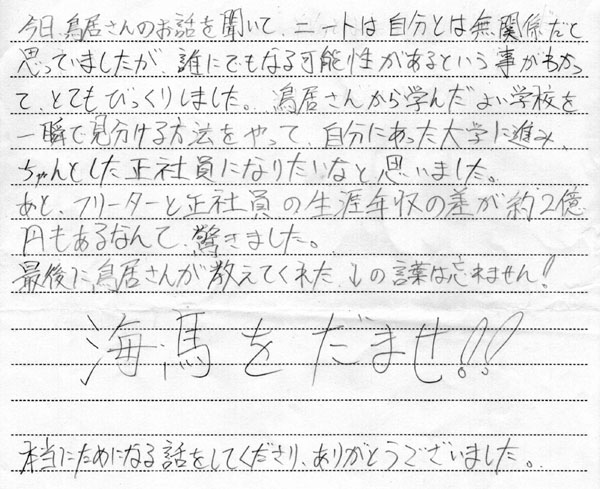 今日、鳥居さんのお話を聞いて、ニートは自分とは無関係だと
思っていましたが、誰にでもなる可能性があるという事がわかっ
て、とてもびっくりしました。鳥居さんから学んだよい学校を
一瞬で見分ける方法をやって、自分にあった大学に進み、
ちゃんとした正社員になりたいなと思いました。
あと、フリーターと正社員の生涯年収の差が約2億
円もあるなんて、驚きました。
最後に鳥居さんが教えてくれた↓の言葉は忘れません!
海馬をだませ!!
本当にためになる話をしてくださり、ありがとうございました。